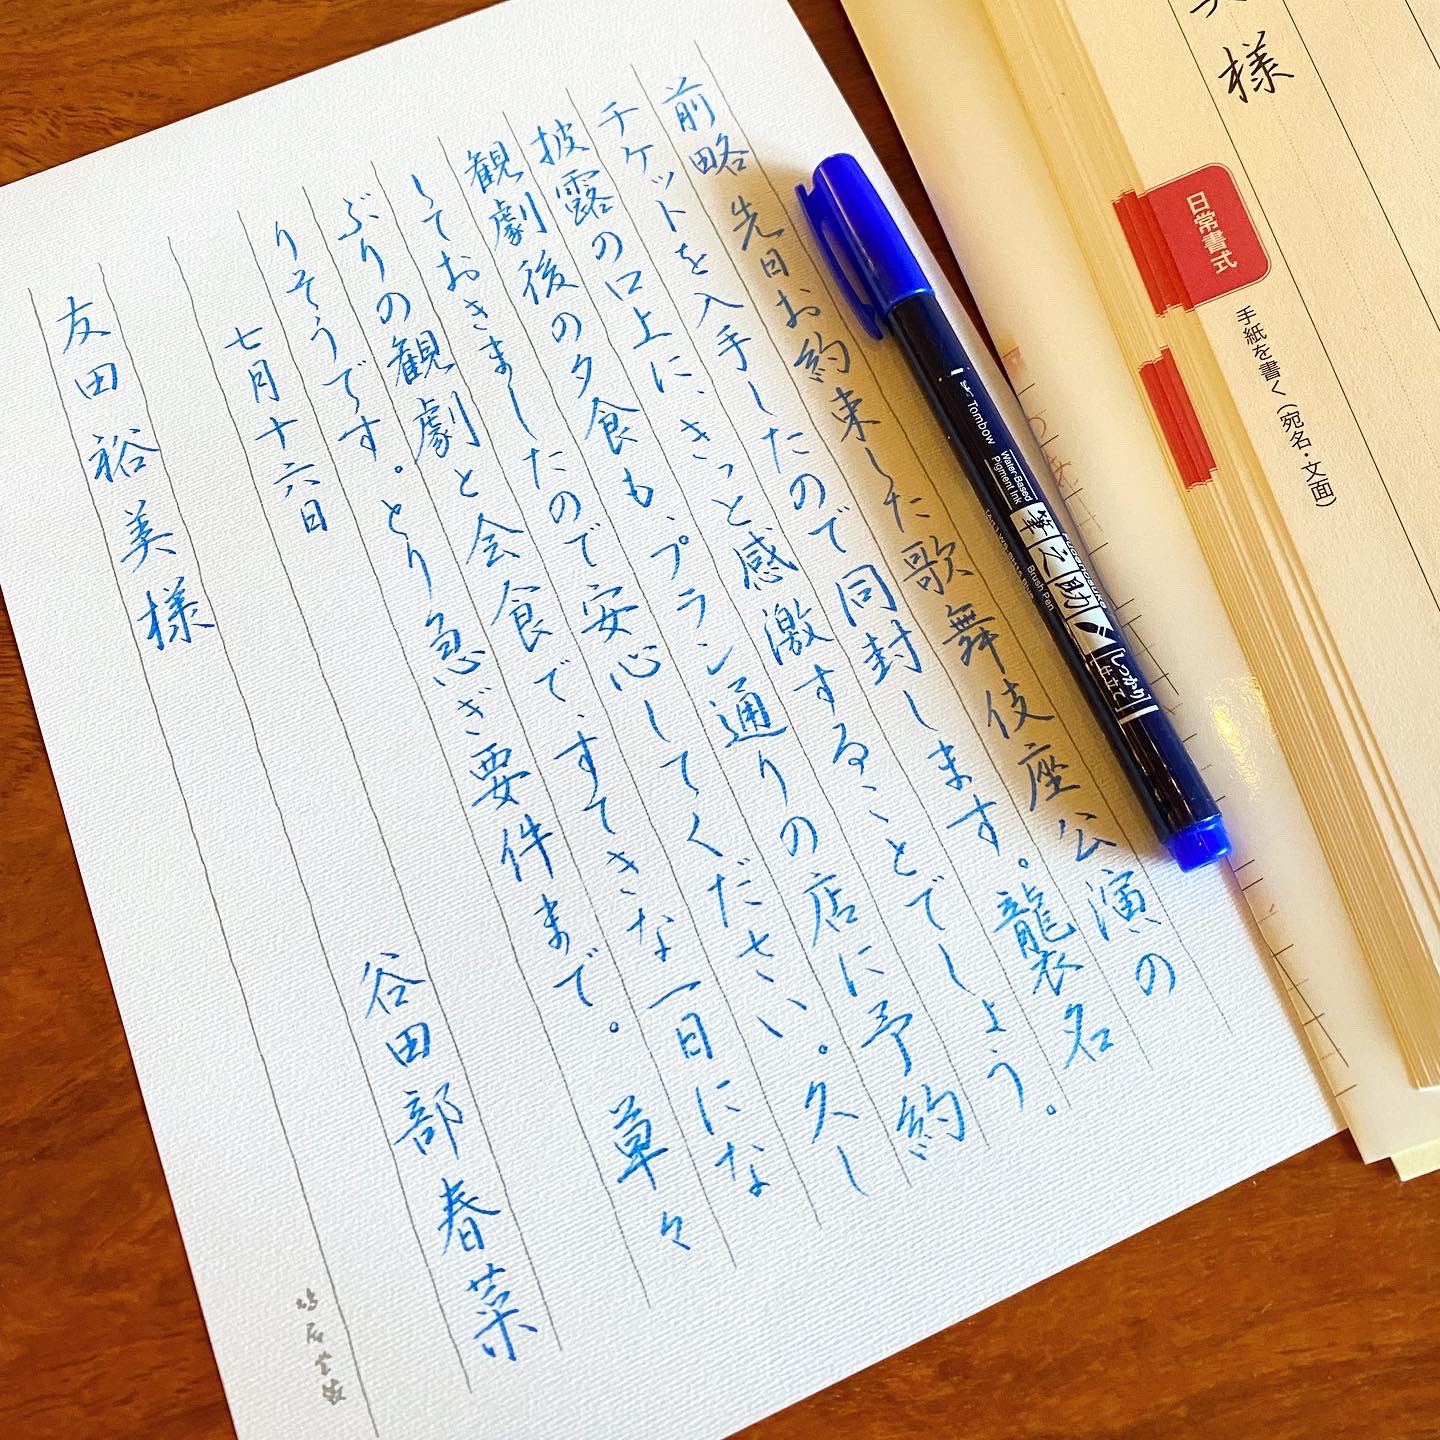 前略 先日お約束した歌舞伎座公演の
チケットを入手したので同封します。襲名
披露の口上に、きっと感激することでしょう。
観劇後の夕食も、プラン通りの店に予約
しておきましたので安心してください。久し
ぶりの観劇と会食で、すてきな一日にな
りそうです。とり急ぎ要件まで。 草々
七月十六日
谷田部春菜
友田裕美様
様
日常書式
手紙を書く(宛名・文面)
Tombow
Water-Based
Pigment Ink
筆之助
Brush Pen
しっかり
仕立て